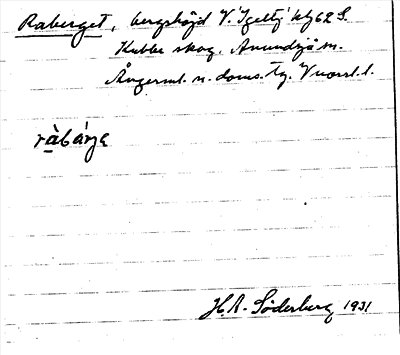 Raberget, bergshöjd V. Igeltj. 62 S.
Kubbe skog. Anundsjö sn.
Ångerml. n. doms. tg. Vnorrl. l.
ràbárje
H.A. Söderberg 1931